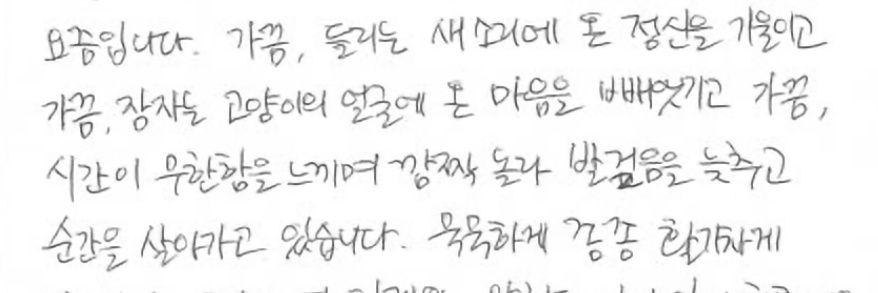 요즘입니다. 가끔, 들리는 새소리에 온 정신을 기울이고
가끔, 잠자는 고양이의 얼굴에 온 마음을 빼앗기고 가끔,
시간이 무한함을 느끼며 깜짝 놀라 발걸음을 늦추고
순간을 살아가고 있습니다. 묵묵하게 종종 활기차게